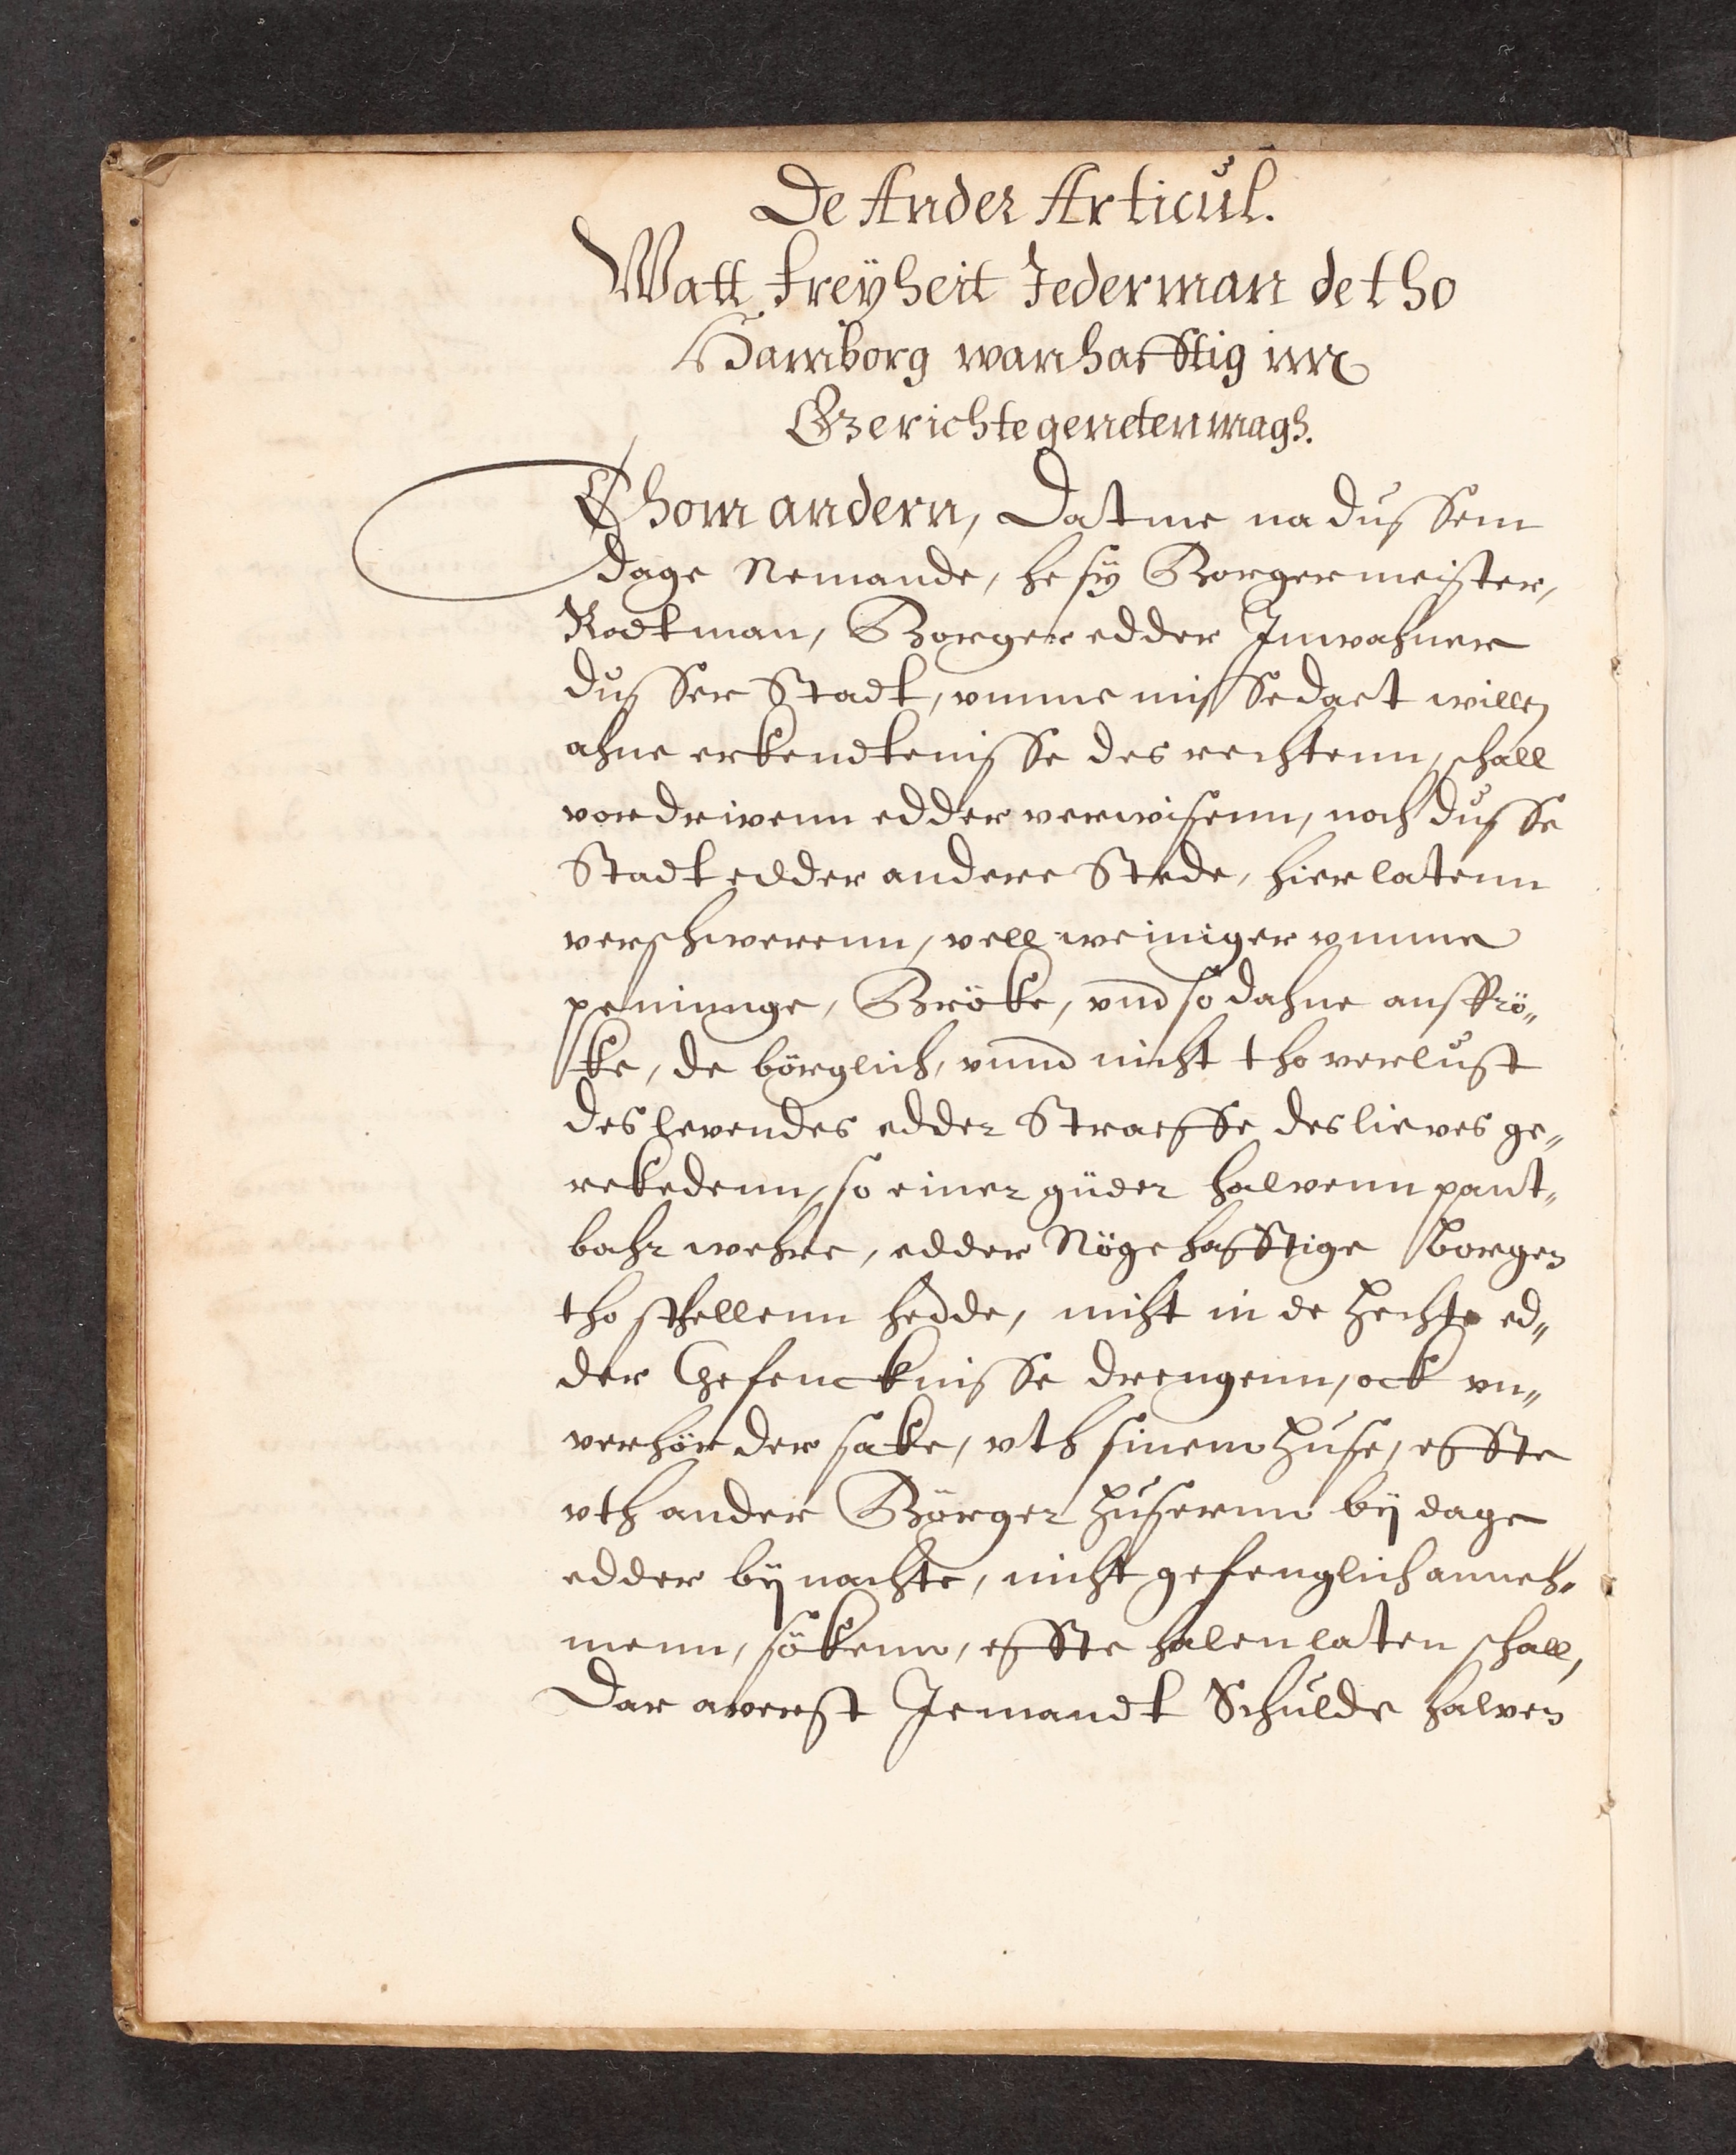 De Ander Articul.
Watt freyheit Jederman de tho
Hamborg wanhafftig im
Gerichte geneten magh.
Thom andern, Dat me na dussem
dage Nemande, he sy Borgermeister,
Radtman, Borger edder Inwahner
dusser Stadt, vmme missedaet willen
ahne erkendtenisse des rechtenn, schall
vordrivenn edder verwisenn, noch dusse
Stadt edder andere Stede, hier latenn
verschwerenn, vell weiniger vmme
penninge, Bröke, vnd so dahne ansprö„
ke, de börglich, vnnd nicht tho verlust
des levendes edder Straeffe des lieves ge„
rekedenn, so einer güder halvenn pant„
bahr wehre, edder Nöge hafftige borgen
tho stellenn hedde, nicht in de hechte ed„
der Gefencknisse drengenn, ock vn„
verhör der sake, vth sinem huse, effte
vth ander Börger husernn by dage
edder by nachte, nicht gefenglich anneh„
menn, sökenn, effte halen laten schall,
Dar averst Jemandt Schulde halven